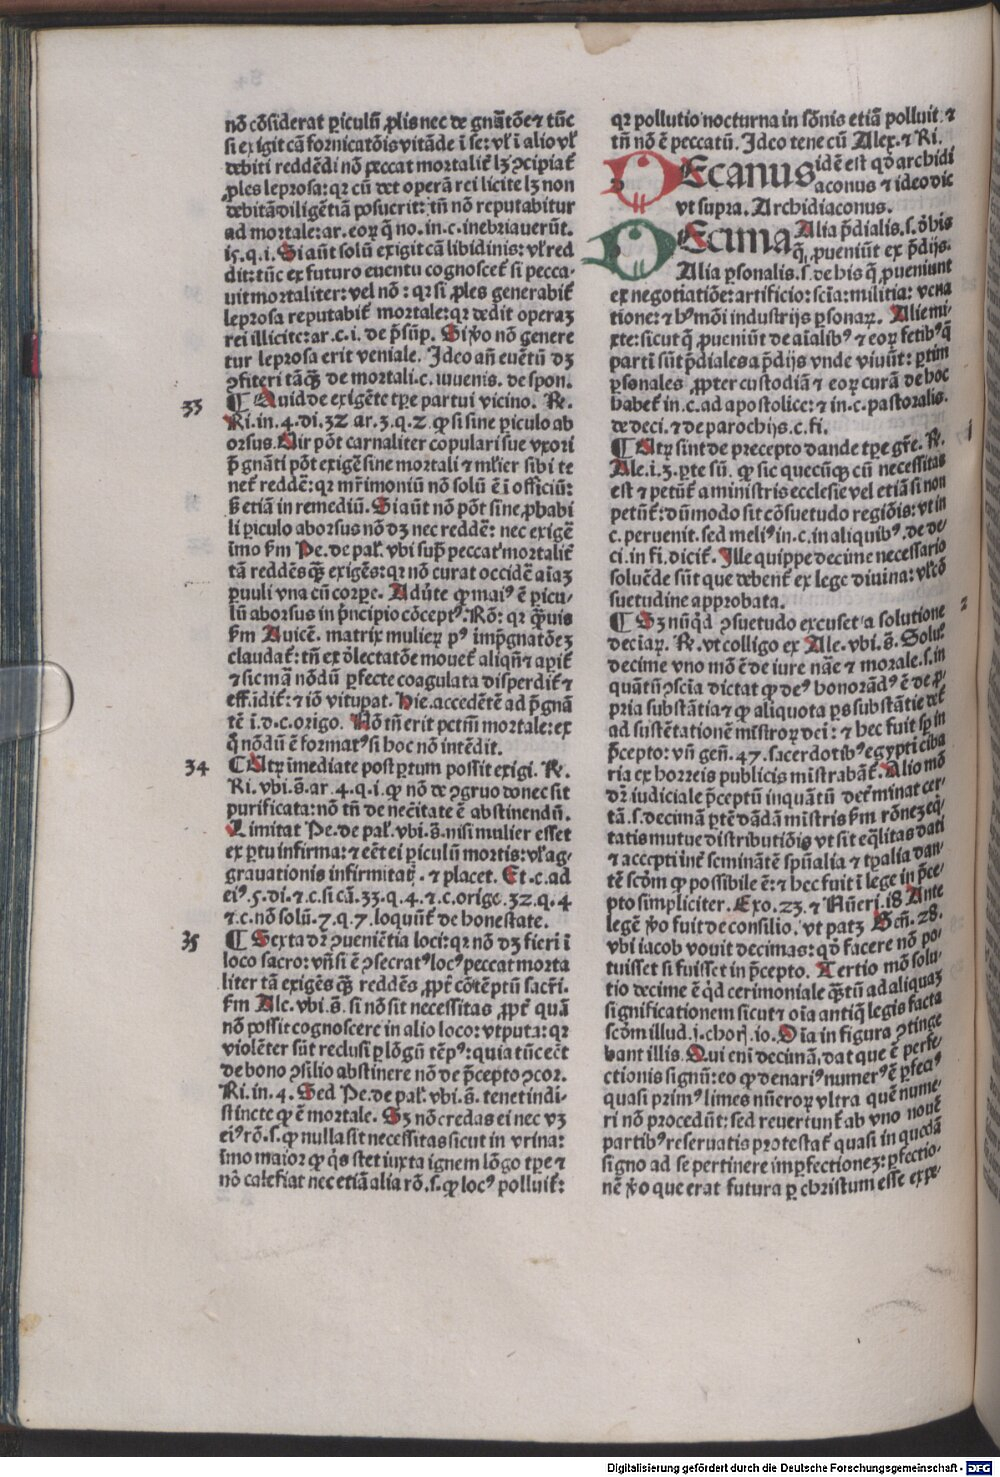 nō cōsiderat ꝑiculū ꝓlis nec de gnatōe ⁊ tūc
si exigit cā fornicatōis vitāde ī se: vl̓ ī alio vl̓
debiti reddēdi nō peccat mortalit̓ lꝫ ↄcipiat̓
ꝓles leprosa: qꝛ cū det operā rei licite lꝫ non
debitā diligētiā posuerit: tn̄ nō reputabitur
ad mortale: ar. eoꝝ q̄ no. in. c. inebriauerūt.
15. q. i. Si aūt solū exigit cā libidinis: vl̓ red
dit: tūc ex futuro euentu cognoscet̓ si pecca-
uit mortaliter: vel nō: qꝛ si ꝓles generabit̓
leprosa reputabit̓ mortale: qꝛ dedit operaꝫ
rei illicite: ar. c. i. de p̄sūp. Si ꝟo nō genere
tur leprosa erit veniale. Ideo an̄ euētū dꝫ
ↄfiteri tāꝙ̄ de mortali. c. iuuenis. de spon.
33 ¶ Quid de exigēte tꝑe partui vicino. ℞.
Ri. in. 4. di. 32 ar. 3. q. 2. ꝙ si sine ꝑiculo ab
orsus. Uir pōt carnaliter copulari sue vxori
p̄gnāti pōt exigē sine mortali ⁊ ml̓ier sibi te
net̓ reddē: qꝛ mr̄imoniū nō solū ē ī officiū:
sꝫ etiā in remediū. Si aūt nō pōt sine ꝓbabi
li ꝑiculo aborsus nō dꝫ nec reddē: nec exigē
īmo ẜm Pe. de pal̓. vbi supͣ peccat mortalit̓
tā reddēs ꝙ̄ exigēs: qꝛ nō curat occidē aīaꝫ
ꝑuuli vna cū corꝑe. Aduͥte ꝙ maiꝰ ē ꝑicu-
lū aborsus in p̄ncipio cōceptꝰ. Rō: qꝛ ꝙ̄uis
ẜm Auicē. matrix mulieꝝ pꝰ imp̄gnatōeꝫ
claudat̓: tn̄ ex d̓lectatōe mouet̓ aliqn̄ ⁊ aꝑit̓
⁊ sic ma nōdū ꝑfecte coagulata disperdit̓ ⁊
effūdit̓: ⁊ iō vitupat. Hie. accedētē ad p̄gnā
tē ī. d. c. origo. Nō tn̄ erit pctm̄ mortale: ex
q̊ nōdū ē formatꝰ si hoc nō intēdit.
34 ¶ Utꝝ īmediate post ꝑtum possit exigi. ℞.
Ri. vbi. s̄. ar. 4. q. i. ꝙ nō de ↄgruo donec sit
purificata: nō tn̄ de necītate ē abstinendū.
Limitat Pe. de pal̓. vbi. s̄. nisi mulier esset
ex ꝑtu infirma: ⁊ eēt ei ꝑiculū mortis: vl̓ ag-
grauationis infirmitatꝭ. ⁊ placet. Et. c. ad
eiꝰ. 5. di. ⁊ c. si cā. 33. q. 4. ⁊ c. origo. 32. q. 4
⁊ c. nō solū. 7. q. 7. loquūt̓ de honestate.
35 ¶ Sexta dꝛ ↄueniētia loci: qꝛ nō dꝫ fieri ī
loco sacro: vn̄ si ē ↄsecratꝰ locꝰ peccat morta
liter tā exigēs ꝙ̄ reddēs ꝓpt̓ cōtēptū sacri.
ẜm Ale. vbi. s̄. si nō sit necessitas ꝓpt̓ quā
nō possit cognoscere in alio loco: vtputa: qꝛ
violēter sūt reclusi ꝑ lōgū tēpꝰ: quia tūc eēt
de bono ↄsilio abstinere nō de p̄cepto ↄcor.
Ri. in. 4. Sed Pe. de pal̓. vbi. s̄. tenet indi-
stincte ꝙ ē mortale. Sꝫ nō credas ei nec vꝫ
eiꝰ rō. s. ꝙ nulla sit necessitas sicut in vrina:
īmo maior ꝙ q̓s stet iuxta ignem lōgo tꝑe ⁊
nō calefiat nec etiā alia rō. s. ꝙ locꝰ polluit̓:
qꝛ pollutio nocturna in sōnis etiā polluit ⁊
tn̄ nō ē peccatū. Ideo tene cū Alex. ⁊ Ri.
DEcanus idē est qd̓ archidi
aconus ⁊ ideo dic
vt supra. Archidiaconus.
DEcima Alia p̄dialis. s. d̓ his
q̄ ꝓueniūt ex p̄dijs.
Alia ꝑsonalis. s. de his q̄ ꝓueniunt
ex negotiatiōe: artificio: scīa: militia: vena
tione: ⁊ hꝰmōi industrijs ꝑsonaꝝ. Alie mi-
xte: sicut q̄ ꝓueniūt de aīalibꝰ ⁊ eoꝝ fetibꝰ q̄
parti sūt p̄diales a p̄dijs vnde viuūt: ꝑtim
ꝑsonales ꝓpter custodiā ⁊ eoꝝ curā de hoc
habet̓ in. c. ad apostolice: ⁊ in. c. pastoralis.
de deci. ⁊ de parochijs. c. fi.
1 ¶ Utꝝ sint de precepto dande tꝑe gr̄e. ℞.
Ale. i. 3. ꝑte sū. ꝙ sic quecūqꝫ cū necessitas
est ⁊ petūt̓ a ministris ecclesie vel etiā si non
petūt̓: dūmodo sit cōsuetudo regiōis: vt in
c. peruenit. sed meliꝰ in. c. in aliquibꝰ. de de
ci. in fi. dicit̓. Ille quippe decime necessario
soluēde sūt que debent̓ ex lege diuina: vl̓ cō
suetudine approbata.
2 ¶ Sꝫ nūqd̓ ↄsuetudo excuset a solutione
deciaꝝ. ℞. vt colligo ex Ale. vbi. s̄. Soluͦ
decime vno mō ē de iure nāe ⁊ morale. s. in
quātū ↄscīa dictat ꝙ deꝰ honorādꝰ ē de ꝓ-
pria substātia ⁊ ꝙ aliquota ꝑs substātie det̓
ad sustētationē mīstroꝝ dei: ⁊ hec fuit sꝑ in
p̄cepto: vn̄ gen̄. 47. sacerdotibꝰ egypti ciba
ria ex horreis publicis mīstrabāt̓. Alio mō
dꝛ iudiciale p̄ceptū inquātū det̓minat cer-
tā. s. decimā ꝑtē dādā mīstris ẜm rōneꝫ eq̄-
tatis mutue distributiōis vt sit eq̄litas dati
⁊ accepti int̓ seminātē spūalia ⁊ tꝑalia dan-
tē scdm̄ ꝙ possibile ē: ⁊ hec fuit ī lege in p̄ce-
pto simpliciter. Exo. 23. ⁊ Nūeri. 18 Ante
legē ꝟo fuit de consilio. vt patꝫ Gen̄. 28.
vbi iacob vouit decimas: qd̓ facere nō po-
tuisset si fuisset in p̄cepto. Tertio mō solu-
tio decime ē qd̓ cerimoniale ꝙ̄tū ad aliquaꝫ
significationem sicut ⁊ oīa antiq̄ legis facta
scdm̄ illud. j. chorj. io. Oīa in figura ↄtinge
bant illis. Qui eni decimā. dat que ē perfe-
ctionis signū: eo ꝙ denariꝰ numerꝰ ē ꝑfectꝰ
quasi primꝰ limes nūeroꝝ vltra quē nume-
ri nō procedūt: sed reuertunt̓ ab vno nouē
partibꝰ reseruatis protestat̓ quasi in quodā
signo ad se pertinere imꝑfectioneꝫ: ꝑfectio-
nē ꝟo que erat futura ꝑ christum esse expe-
Digitalisierung gefördert durch die Deutsche Forschungsgemeinschaft - DFG